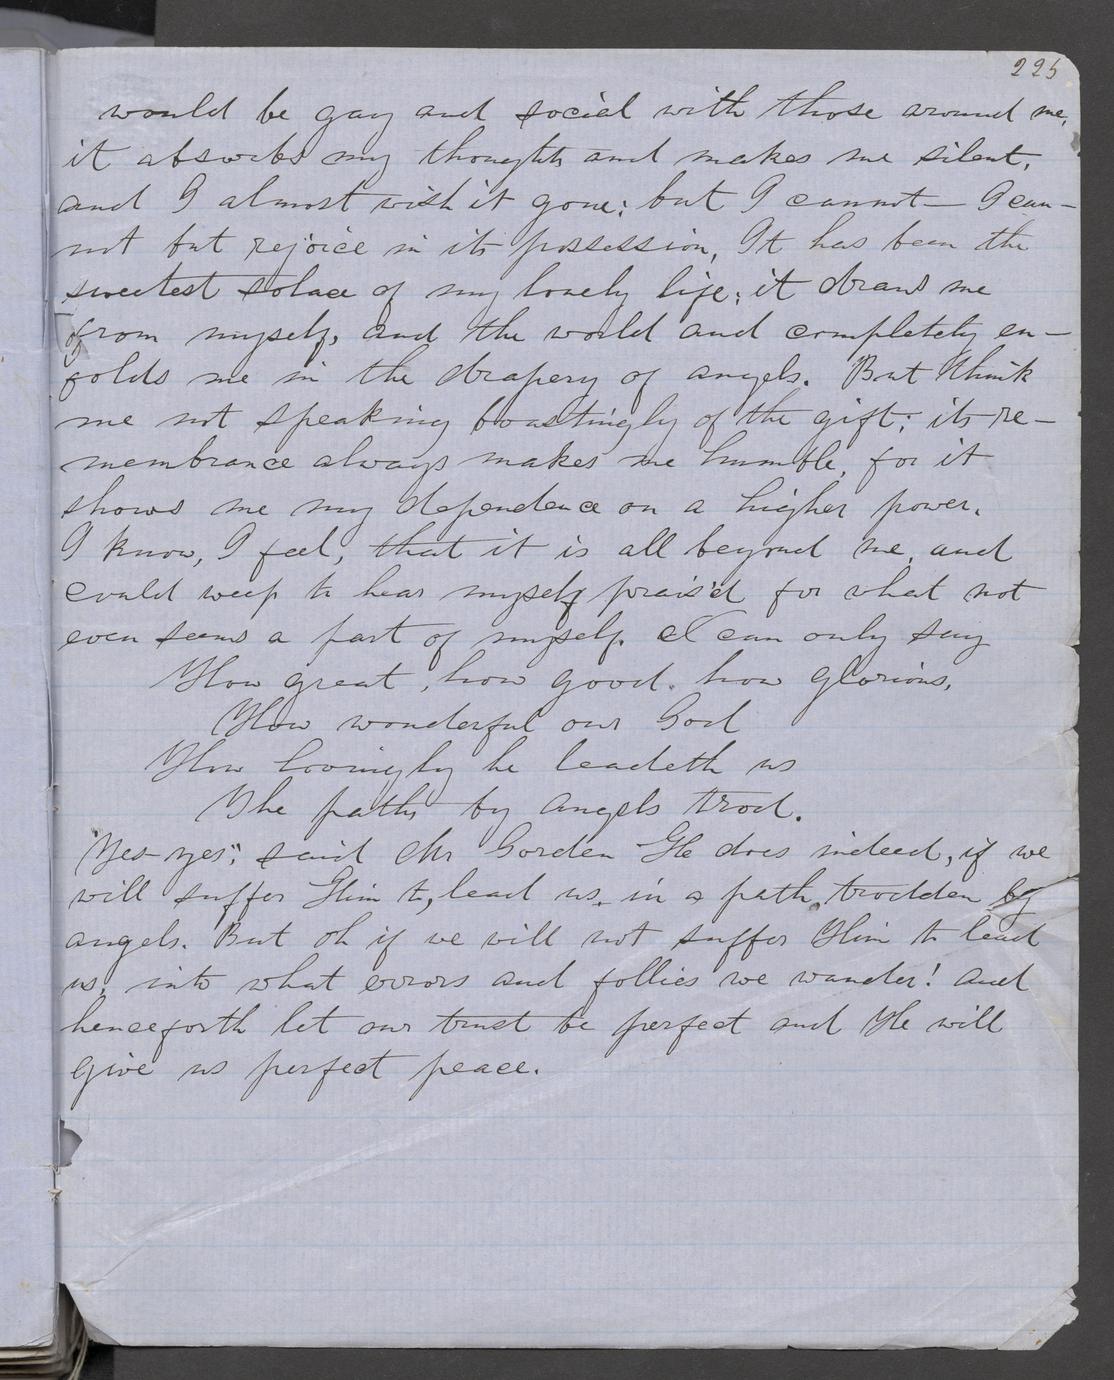 225
would be gay and social with those around me,
it absorbs my thoughts and makes me silent,
and I almost wish it gone; but I cannot— I can-
not but rejoice in its possession, It has been the
sweetest solace of my lonely life; it draws me
from myself, and the world and completely en-
folds me in the drapery of angels. But think
me not speaking boastingly of the gift; its re-
membrance always makes me humble, for it
shows me my dependence on a higher power.
I know, I feel, that it is all beyond me, and
could weep to hear myself prais'd for what not
even seems a part of myself. I can only say
How great, how good. how glorious,
How wonderful our God
How lovingly he leadeth us
The paths by angels trod.
"Yes—yes", said Mr Gorden He does indeed, if we
will suffer Him to, lead us, in a path, trodden by
angels. But oh if we will not suffer Him to lead
us, into what errors and follies we wander! and
henceforth let our trust be perfect and He will
give us perfect peace.